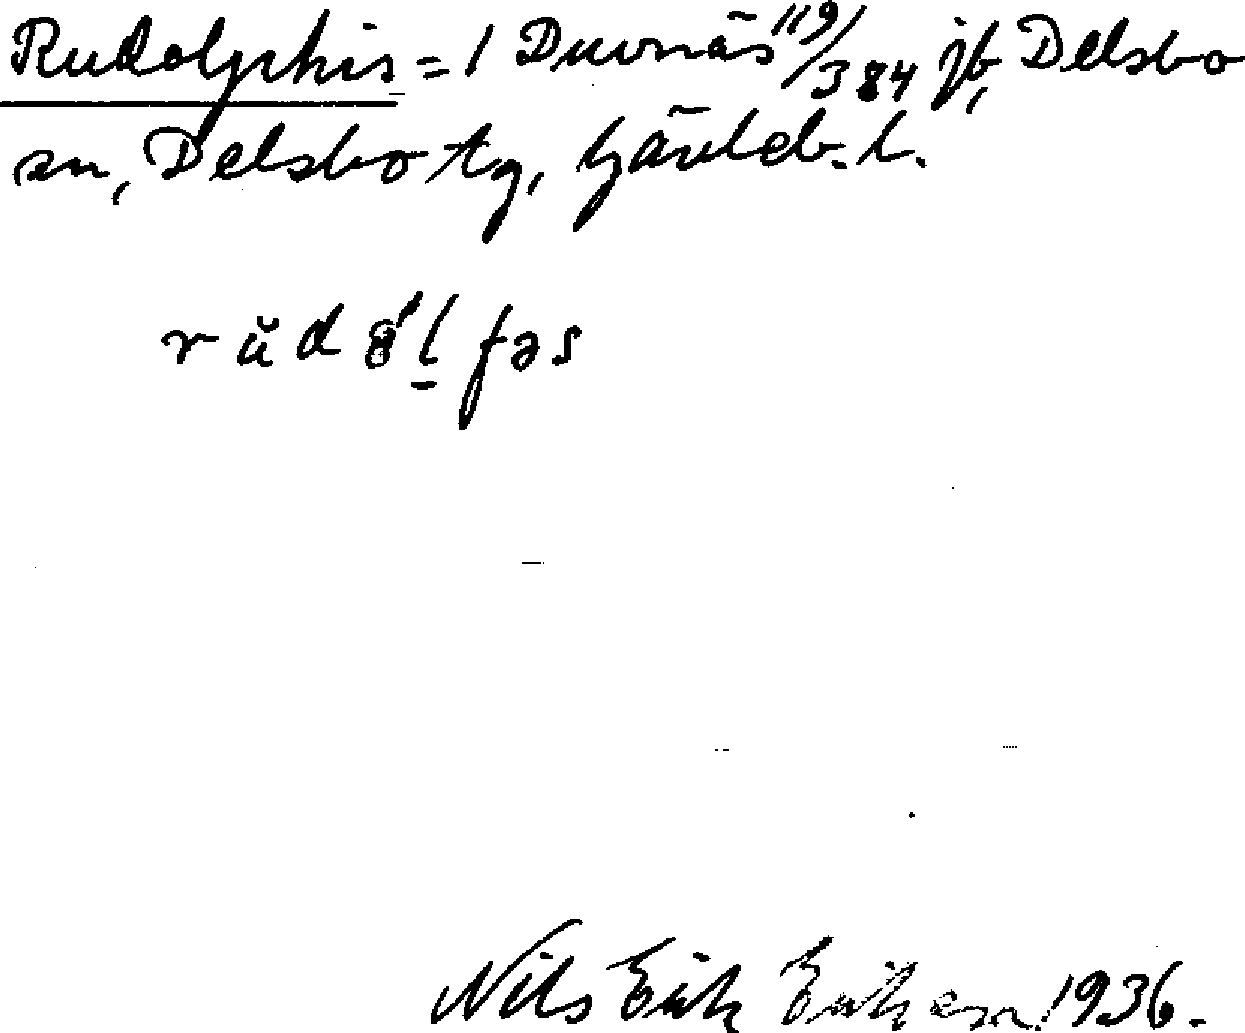 Rudolphis = 1 Duvnäs 119/384 jb, Delsbo
sn, Delsbo tg, Gävleb. l.
rŭdól̠fəs
Nils Erik Eriksson 1936.